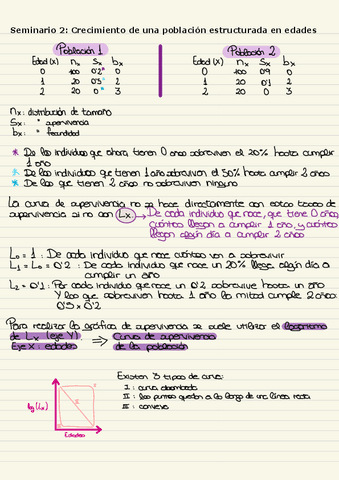 Seminario 2: Crecimiento de una población estructurada en edades
Población 1
Población 2
Edad (x) nx sx bx
0 100 0'2* 0
1 20 0'5* 2
2 20 0* 3
Edad (x) nx sx bx
0 100 0'9 0
1 20 0'1 2
2 20 0 3
nx: distribución de tamaño
sx: " supervivencia
bx: " fecundidad
* De los individuos que ahora tienen 0 años sobreviven el 20% hasta cumplir
1 año
* De los individuos que tienen 1 año sobreviven el 50% hasta cumplir 2 años
* De los que tienen 2 años no sobreviven ninguno
La curva de supervivencia no se hace directamente con estas tasas de
supervivencia si no con Lx → De cada individuo que nace, que tiene 0 años,
cuántos llegan a cumplir 1 año, y cuántos
llegan algún día a cumplir 2 años
L0 = 1 : De cada individuo que nace cuántos van a sobrevivir
L1 = L0 = 0'2 : De cada individuo que nace un 20% llega algún día a
cumplir un año
L2 = 0'1 : Por cada individuo que nace un 0'2 sobrevive hasta un año
Y los que sobreviven hasta 1 año la mitad cumple 2 años:
0'5 x 0'2
Para realizar la gráfica de supervivencia se suele utilizar el logaritmo
de Lx (eje Y)
Eje X: edades
⇒ Curva de supervivencia
de la población
Existen 3 tipos de curva:
I : curva
II : los puntos quedan a lo largo de una línea recta
III : convexa
log (Lx)
I
II
III
Edades